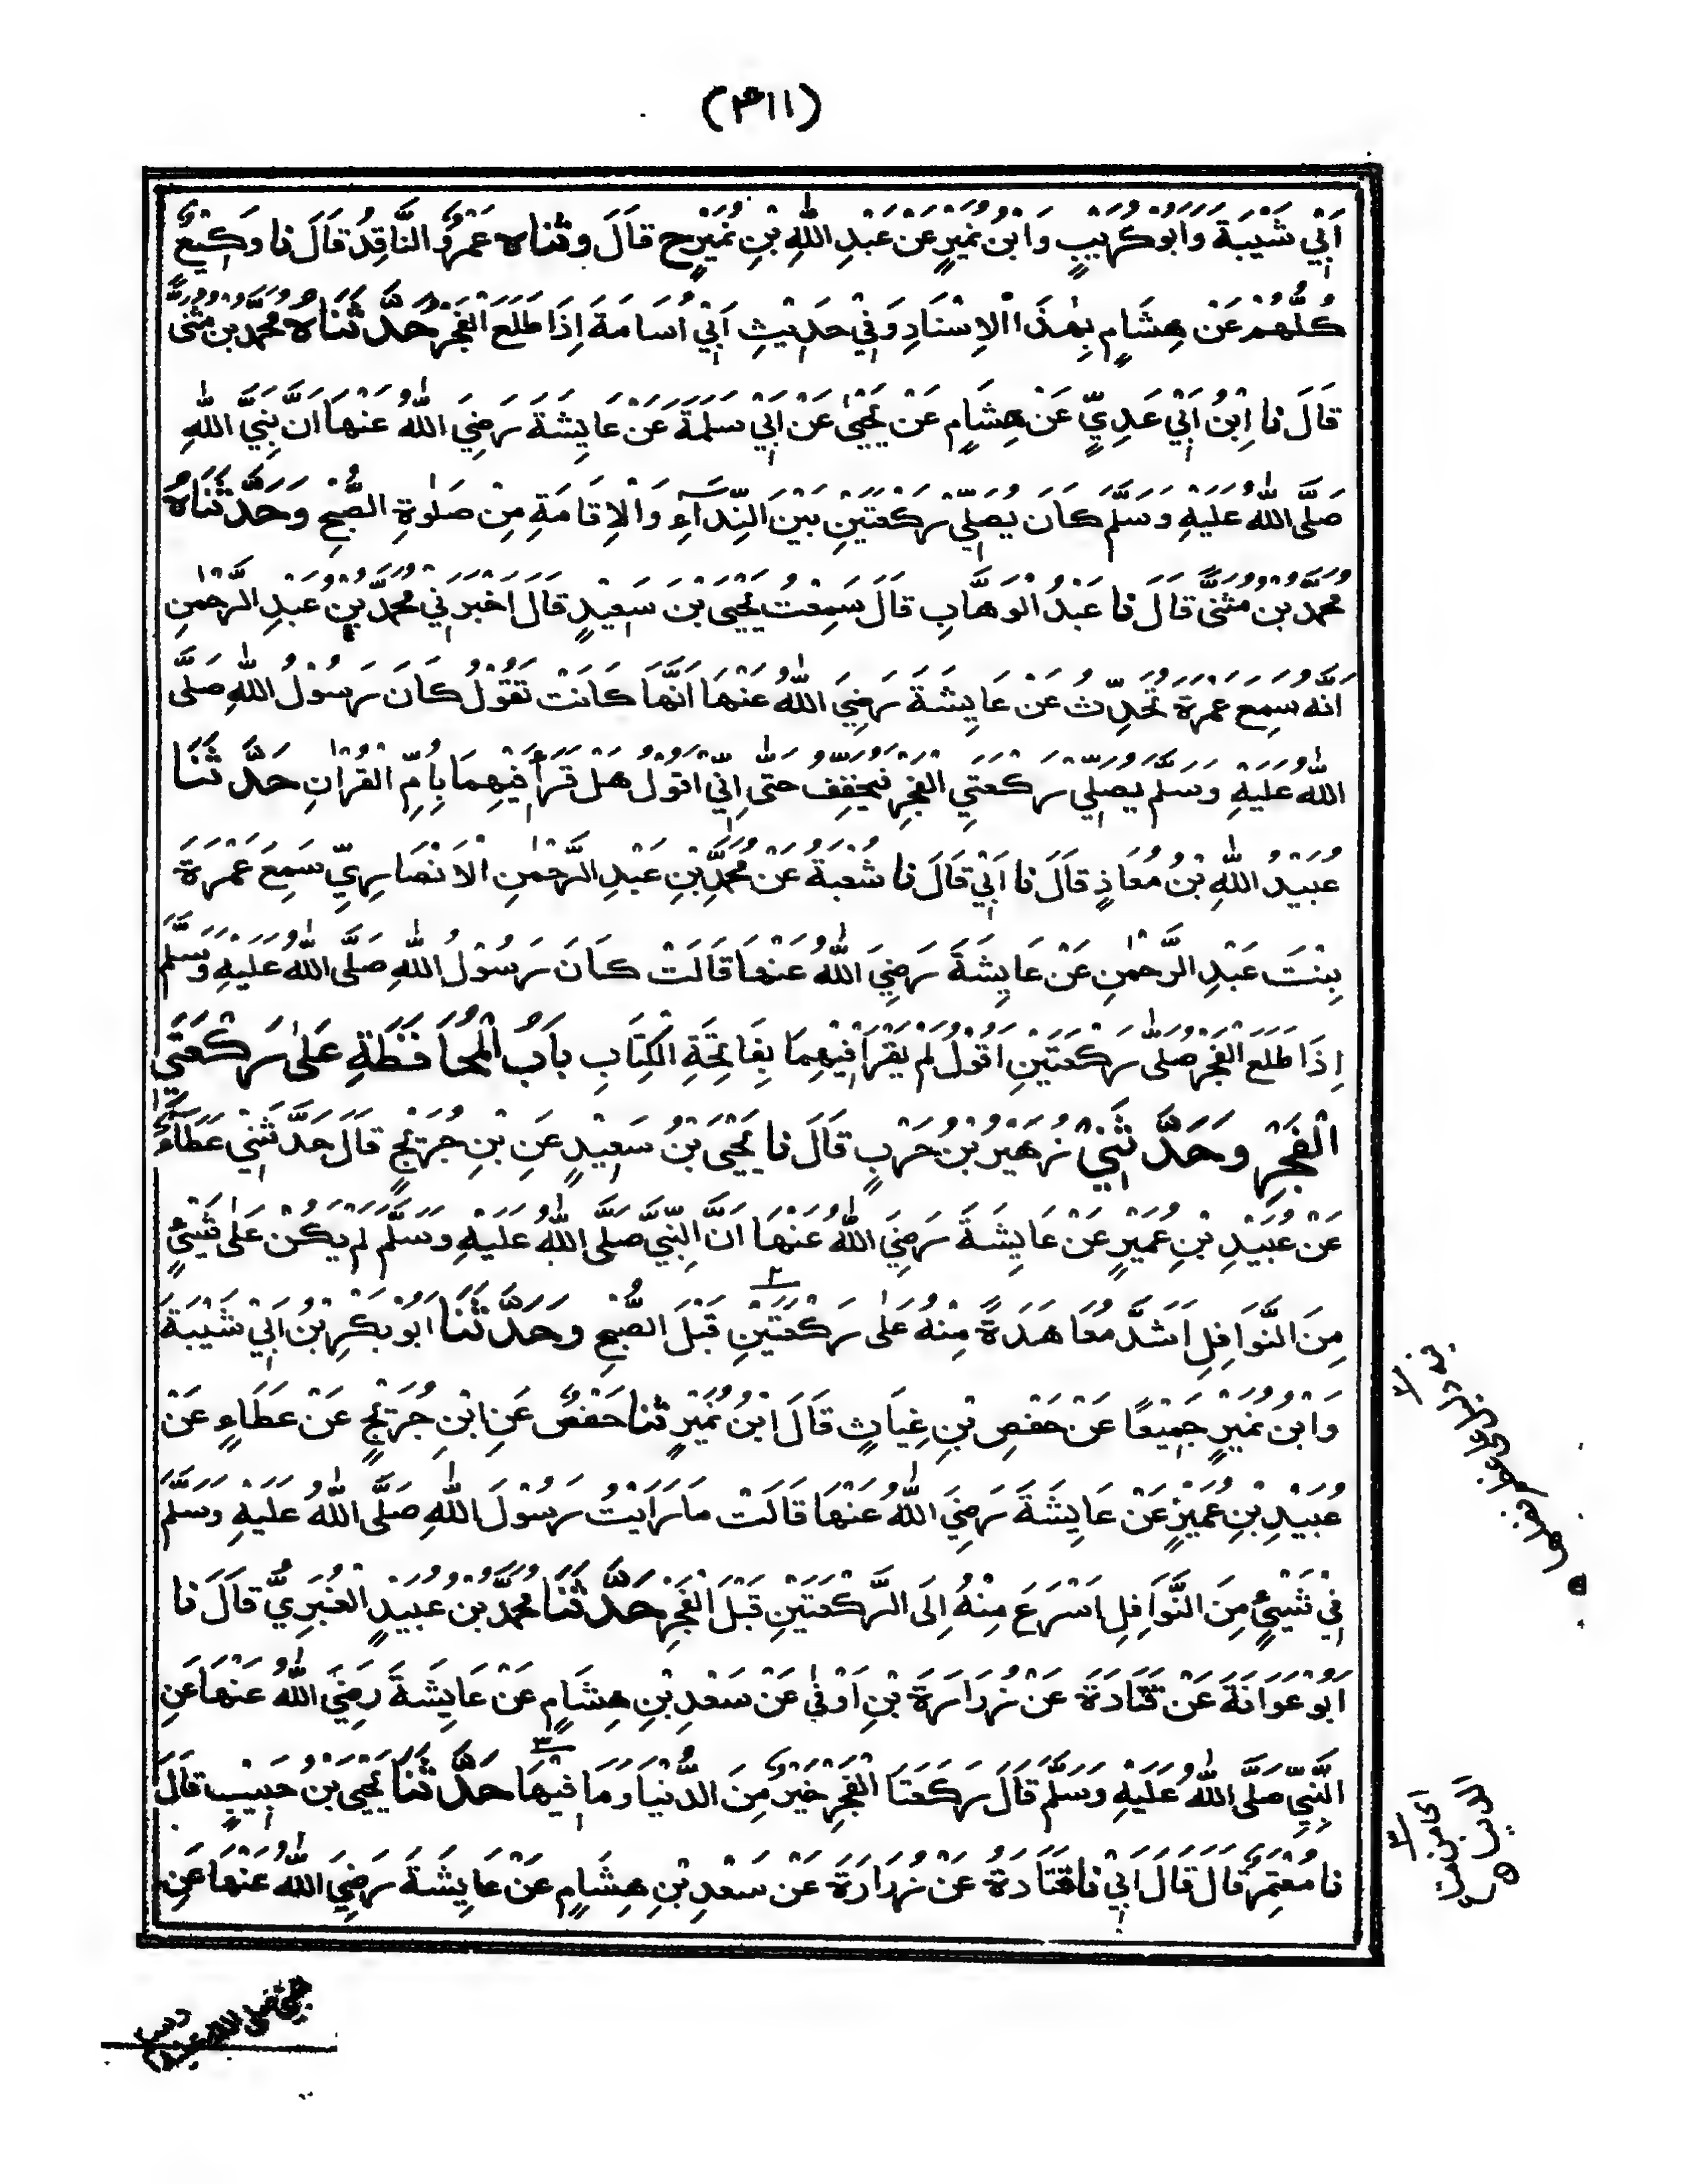 (٣١١)
اَبِيْ شَيْبَةَ وَاَبُوْكُرَيْبٍ وَابْنُ نُمَيْرٍ عَنْ عَبْدِ اللّٰهِ بْنِ نُمَيْرٍ ح قَالَ وثناه عَمْرٌو النَّاقِدُ قَالَ نا وَكِيْعٌ
كُلُّهُمْ عَنْ هِشَامٍ بِهٰذَا الْاِسْنَادِ وَفِيْ حَدِيْثِ اَبِيْ اُسَامَةَ اِذَا طَلَعَ الْفَجْرُ حَدَّثَنَاهُ مُحَمَّدُ بْنُ مُثَنّٰى
قَالَ نا اِبْنُ اَبِيْ عَدِيٍّ عَنْ هِشَامٍ عَنْ يَحْيٰى عَنْ اَبِيْ سَلَمَةَ عَنْ عَايِشَةَ رَضِيَ اللّٰهُ عَنْهَا اَنَّ نَبِيَّ اللّٰهِ
صَلَّى اللّٰهُ عَلَيْهِ وَسَلَّمَ كَانَ يُصَلِّيْ رَكْعَتَيْنِ بَيْنَ النِّدَآءِ وَالْاِقَامَةِ مِنْ صَلٰوةِ الصُّبْحِ وَحَدَّثَنَاهُ
مُحَمَّدُ بْنُ مُثَنّٰى قَالَ نا عَبْدُ الْوَهَّابِ قَالَ سَمِعْتُ يَحْيَى بْنَ سَعِيْدٍ قَالَ اَخْبَرَنِيْ مُحَمَّدُ بْنُ عَبْدِ الرَّحْمٰنِ
اَنَّهُ سَمِعَ عَمْرَةَ تُحَدِّثُ عَنْ عَايِشَةَ رَضِيَ اللّٰهُ عَنْهَا اَنَّهَا كَانَتْ تَقُوْلُ كَانَ رَسُوْلُ اللّٰهِ صَلَّى
اللّٰهُ عَلَيْهِ وَسَلَّمَ يُصَلِّيْ رَكْعَتَيِ الْفَجْرِ فَيُخَفِّفُ حَتّٰى اِنِّيْ اَقُوْلُ هَلْ قَرَأَ فِيْهِمَا بِاُمِّ الْقُرْاٰنِ حَدَّثَنَا
عُبَيْدُ اللّٰهِ بْنُ مُعَاذٍ قَالَ نا اَبِيْ قَالَ نا شُعْبَةُ عَنْ مُحَمَّدِ بْنِ عَبْدِ الرَّحْمٰنِ الْاَنْصَارِيِّ سَمِعَ عَمْرَةَ
بِنْتَ عَبْدِ الرَّحْمٰنِ عَنْ عَايِشَةَ رَضِيَ اللّٰهُ عَنْهَا قَالَتْ كَانَ رَسُوْلُ اللّٰهِ صَلَّى اللّٰهُ عَلَيْهِ وَسَلَّمَ
اِذَا طَلَعَ الْفَجْرُ صَلّٰى رَكْعَتَيْنِ اَقُوْلُ لَمْ يَقْرَأْ فِيْهِمَا بِفَاتِحَةِ الْكِتَابِ بَابُ الْمُحَافَظَةِ عَلٰى رَكْعَتَيِ
الْفَجْرِ وَحَدَّثَنِيْ زُهَيْرُ بْنُ حَرْبٍ قَالَ نا يَحْيَى بْنُ سَعِيْدٍ عَنِ بْنِ جُرَيْجٍ قَالَ حَدَّثَنِيْ عَطَاءٌ
عَنْ عُبَيْدِ بْنِ عُمَيْرٍ عَنْ عَايِشَةَ رَضِيَ اللّٰهُ عَنْهَا اَنَّ النَّبِيَّ صَلَّى اللّٰهُ عَلَيْهِ وَسَلَّمَ لَمْ يَكُنْ عَلٰى شَيْئٍ
مِنَ النَّوَافِلِ اَشَدَّ مُعَاهَدَةً مِنْهُ عَلٰى رَكْعَتَيْنِ قَبْلَ الصُّبْحِ وَحَدَّثَنَا اَبُوْبَكْرِ بْنُ اَبِيْ شَيْبَةَ
وَابْنُ نُمَيْرٍ جَمِيْعًا عَنْ حَفْصِ بْنِ غِيَاثٍ قَالَ ابْنُ نُمَيْرٍ ثنا حَفْصٌ عَنِ ابْنِ جُرَيْجٍ عَنْ عَطَاءٍ عَنْ
عُبَيْدِ بْنِ عُمَيْرٍ عَنْ عَايِشَةَ رَضِيَ اللّٰهُ عَنْهَا قَالَتْ مَا رَاَيْتُ رَسُوْلَ اللّٰهِ صَلَّى اللّٰهُ عَلَيْهِ وَسَلَّمَ
فِيْ شَيْئٍ مِنَ النَّوَافِلِ اَسْرَعَ مِنْهُ اِلَى الرَّكْعَتَيْنِ قَبْلَ الْفَجْرِ حَدَّثَنَا مُحَمَّدُ بْنُ عُبَيْدٍ الْغُبَرِيُّ قَالَ نا
اَبُوْعَوَانَةَ عَنْ قَتَادَةَ عَنْ زُرَارَةَ بْنِ اَوْفٰى عَنْ سَعْدِ بْنِ هِشَامٍ عَنْ عَايِشَةَ رَضِيَ اللّٰهُ عَنْهَا عَنِ
النَّبِيِّ صَلَّى اللّٰهُ عَلَيْهِ وَسَلَّمَ قَالَ رَكْعَتَا الْفَجْرِ خَيْرٌ مِنَ الدُّنْيَا وَمَا فِيْهَا حَدَّثَنَا يَحْيَى بْنُ حَبِيْبٍ قَالَ
نا مُعْتَمِرٌ قَالَ قَالَ اَبِيْ نا قَتَادَةُ عَنْ زُرَارَةَ عَنْ سَعْدِ بْنِ هِشَامٍ عَنْ عَايِشَةَ رَضِيَ اللّٰهُ عَنْهَا عَنِ